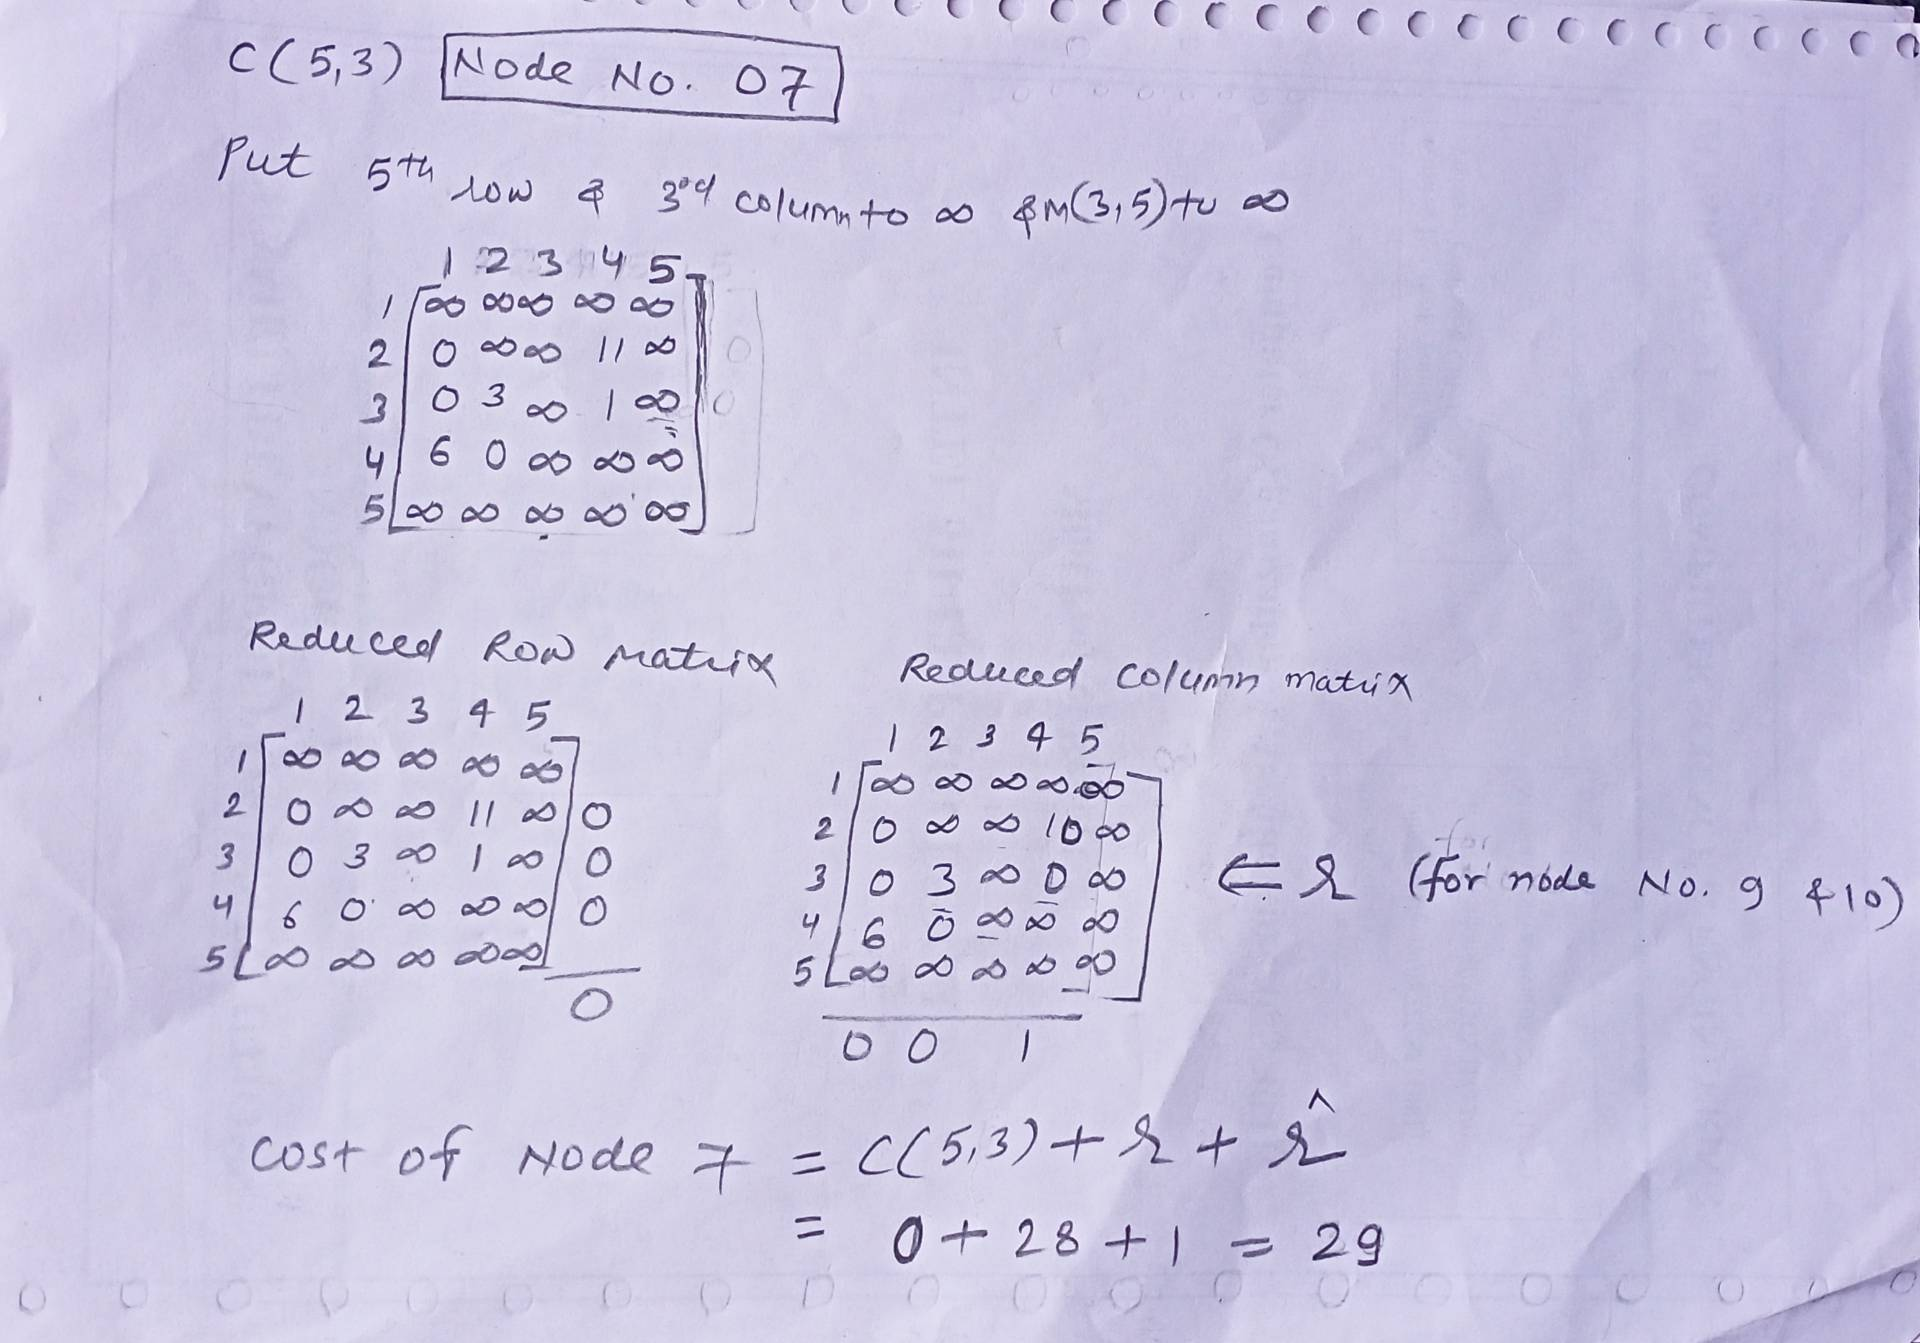 C(5,3) Node No. 07
Put 5th row & 3rd column to ∞ & M(3,5) to ∞
1 2 3 4 5
1 ∞ ∞ ∞ ∞ ∞
2 0 ∞ ∞ 11 ∞
3 0 3 ∞ 1 ∞
4 6 0 ∞ ∞ ∞
5 ∞ ∞ ∞ ∞ ∞
Reduced Row matrix
1 2 3 4 5
1 ∞ ∞ ∞ ∞ ∞
2 0 ∞ ∞ 11 ∞ 0
3 0 3 ∞ 1 ∞ 0
4 6 0 ∞ ∞ ∞ 0
5 ∞ ∞ ∞ ∞ ∞
0
Reduced column matrix
1 2 3 4 5
1 ∞ ∞ ∞ ∞ ∞
2 0 ∞ ∞ 10 ∞
3 0 3 ∞ 0 ∞ ⇐ r (for node No. 9 & 10)
4 6 0 ∞ ∞ ∞
5 ∞ ∞ ∞ ∞ ∞
0 0 1
Cost of Node 7 = C(5,3) + r + r̂
= 0 + 28 + 1 = 29